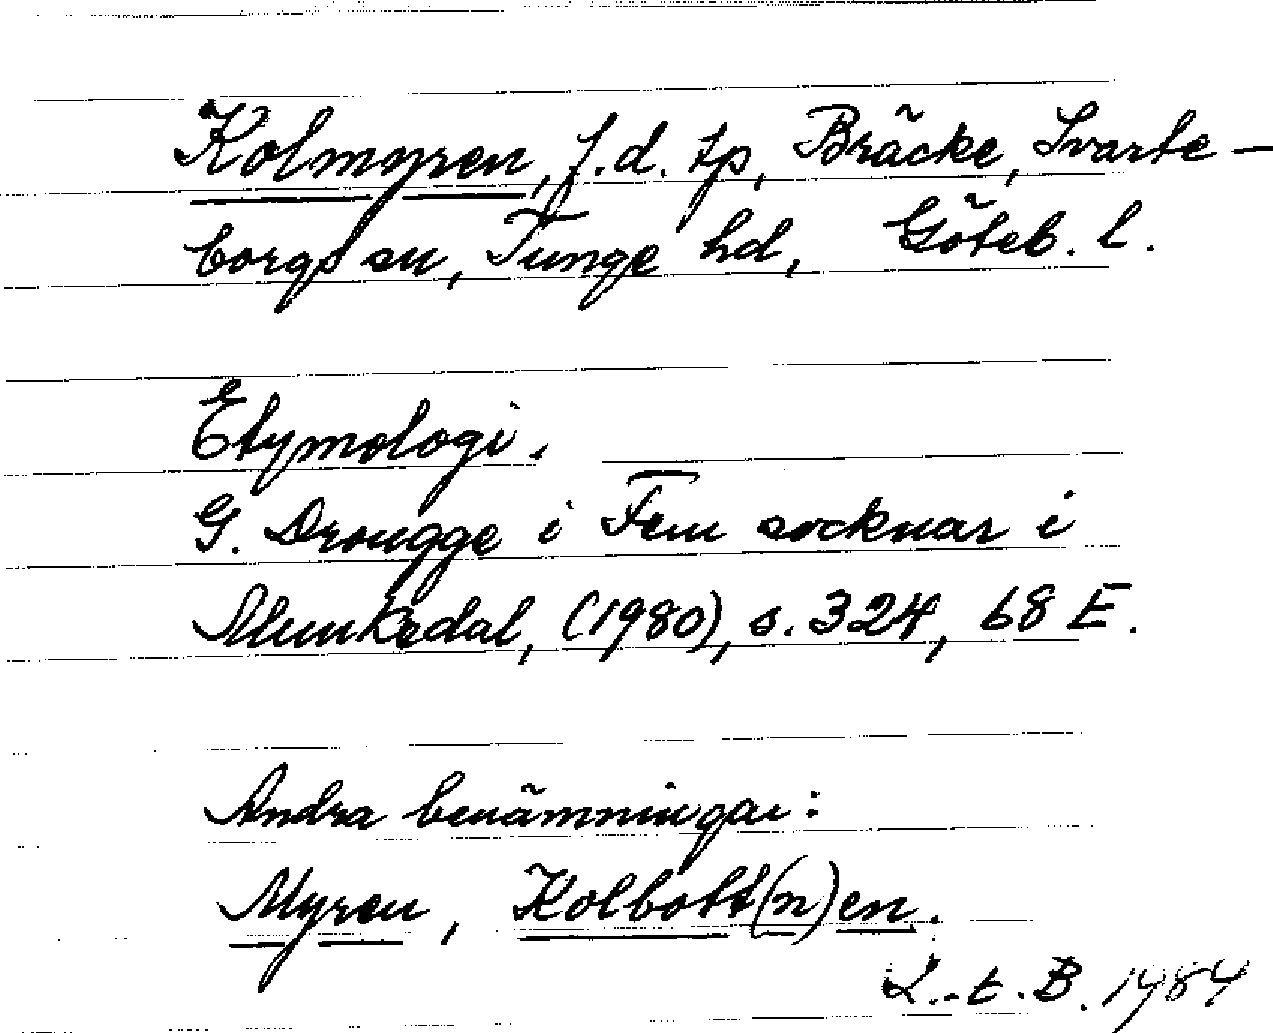 Kolmyren, f.d. tp, Bräcke, Svarte-
borgs sn, Tunge hd, Göteb. l.
Etymologi.
G. Drougge i Fem socknar i
Munkedal, (1980), s. 324, 68 E.
Andra benämningar:
Myren, Kolbott(n)en.
L.-t. B. 1984